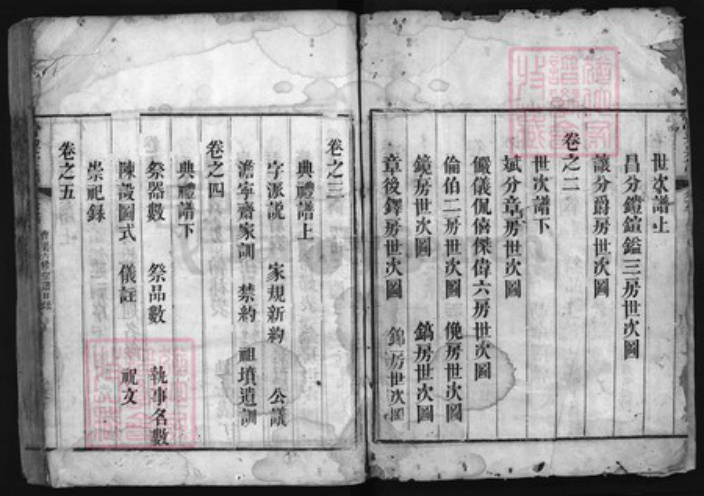 世次譜上
昌分鎧鍹鎰三房世次圖
讓分爵房世次圖
卷之二
世次譜下
斌分章房世次圖
儼儀侃僖傑偉六房世次圖
倫伯二房世次圖 俛房世次圖
鏡房世次圖 鎬房世次圖
章後鐸房世次圖 錦房世次圖
卷之三
典禮譜上
字派說 家規新約 公議
澹寧齋家訓 禁約 祖墳遺訓
卷之四
典禮譜下
祭器數 祭品數 執事名數
陳設圖式 儀註 祝文
崇祀錄
卷之五